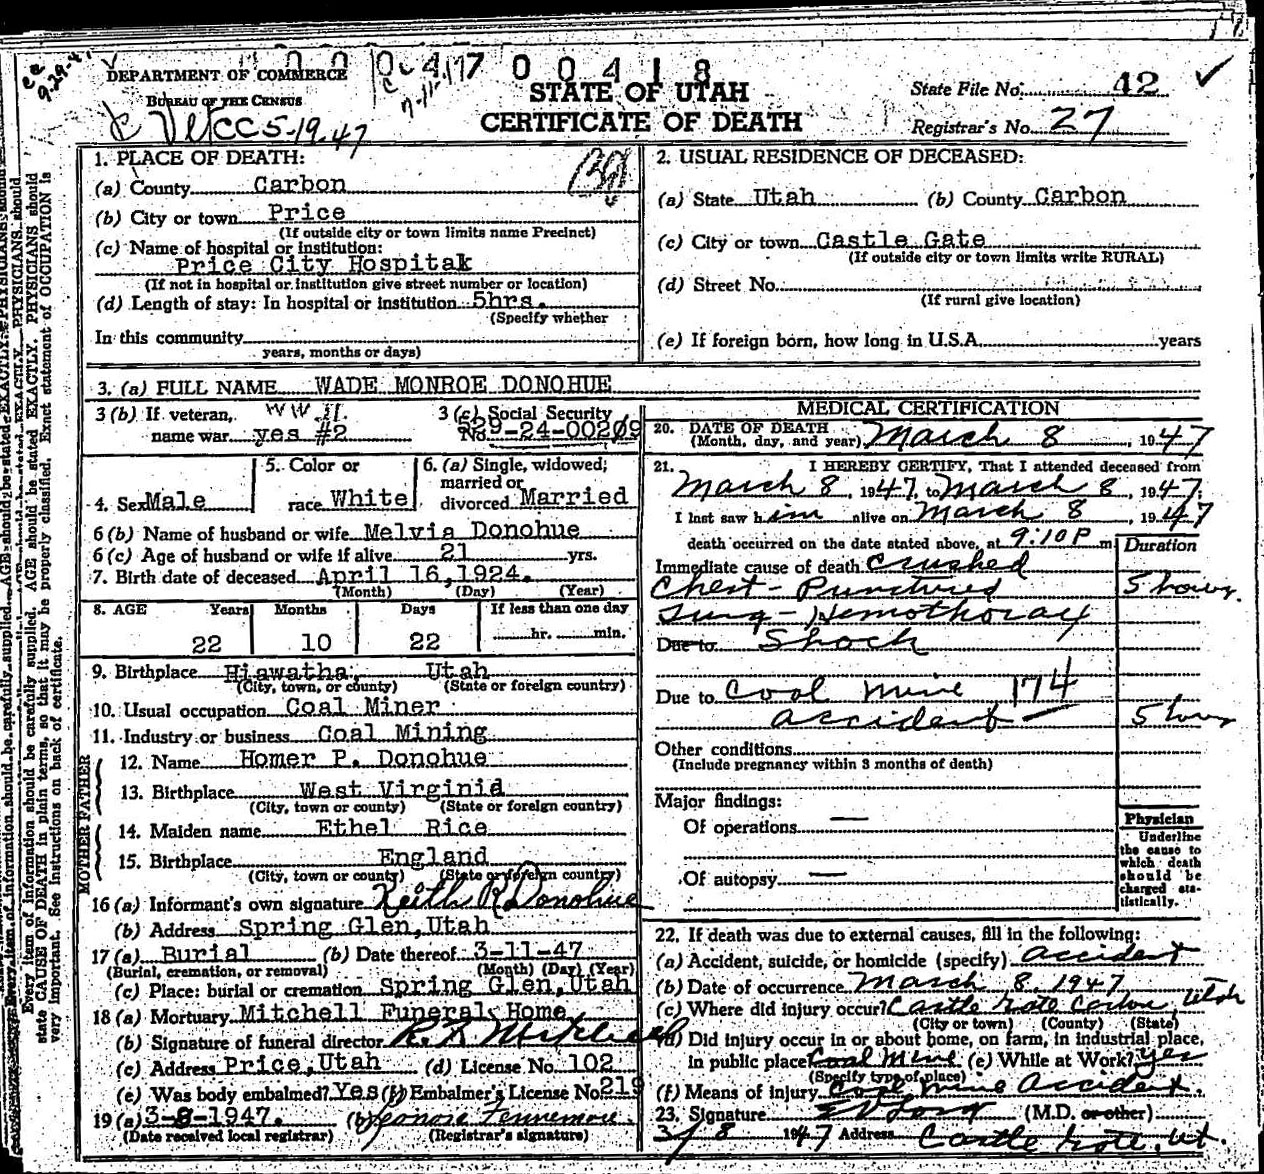 DEPARTMENT OF COMMERCE
BUREAU OF THE CENSUS
Ver CC 5-19-47
7-11-47
047 00418
STATE OF UTAH
CERTIFICATE OF DEATH
State File No. 42
Registrar's No. 27
1. PLACE OF DEATH:
(a) County Carbon
(b) City or town Price
(If outside city or town limits name Precinct)
(c) Name of hospital or institution:
Price City Hospital
(If not in hospital or institution give street number or location)
(d) Length of stay: In hospital or institution 5hrs.
(Specify whether
In this community
years, months or days)
2. USUAL RESIDENCE OF DECEASED:
(a) State Utah (b) County Carbon
(c) City or town Castle Gate
(If outside city or town limits write RURAL)
(d) Street No.
(If rural give location)
(e) If foreign born, how long in U.S.A. years
3. (a) FULL NAME WADE MONROE DONOHUE
3 (b) If veteran, WW II.
name war yes #2
3 (c) Social Security
No. 529-24-00209
4. Sex Male
5. Color or
race White
6. (a) Single, widowed;
married or
divorced Married
6 (b) Name of husband or wife Melvia Donohue
6 (c) Age of husband or wife if alive 21 yrs.
7. Birth date of deceased April 16,1924.
(Month) (Day) (Year)
8. AGE Years Months Days If less than one day
22 10 22 hr. min.
9. Birthplace Hiawatha, Utah
(City, town, or county) (State or foreign country)
10. Usual occupation Coal Miner
11. Industry or business Coal Mining
FATHER
12. Name Homer P. Donohue
13. Birthplace West Virginia
(City, town or county) (State or foreign country)
MOTHER
14. Maiden name Ethel Rice
15. Birthplace England
(City, town or county) (State or foreign country)
16 (a) Informant's own signature Keith R Donohue
(b) Address Spring Glen,Utah
17 (a) Burial (b) Date thereof 3-11-47
(Burial, cremation, or removal) (Month) (Day) (Year)
(c) Place: burial or cremation Spring Glen,Utah
18 (a) Mortuary Mitchell Funeral Home
(b) Signature of funeral director
(c) Address Price,Utah (d) License No. 102
(e) Was body embalmed? Yes (f) Embalmer's License No. 219
19 (a) 3-8-1947. (b) Leonore Fennemore
(Date received local registrar) (Registrar's signature)
MEDICAL CERTIFICATION
20. DATE OF DEATH
(Month, day, and year) March 8, 1947
21. I HEREBY CERTIFY, That I attended deceased from
March 8, 1947, to March 8, 1947;
I last saw him alive on March 8, 1947
death occurred on the date stated above, at 9:10 P m
Duration
Immediate cause of death Crushed
Chest - Punctured 5 hours.
Lung - Hemothorax
Due to Shock
Due to Coal mine 174
accident 5 hours
Other conditions
(Include pregnancy within 3 months of death)
Major findings:
Of operations —
Of autopsy —
Physician
Underline
the cause to
which death
should be
charged sta-
tistically.
22. If death was due to external causes, fill in the following:
(a) Accident, suicide, or homicide (specify) Accident
(b) Date of occurrence March 8, 1947
(c) Where did injury occur? Castle Gate Carbon, Utah
(City or town) (County) (State)
(d) Did injury occur in or about home, on farm, in industrial place,
in public place? Coal Mine (e) While at Work? yes
(Specify type of place)
(f) Means of injury Coal mine accident.
23. Signature (M.D. or other)
3/8 1947 Address Castle Gate, Ut.
Every item of information should be carefully supplied. AGE should be stated EXACTLY. PHYSICIANS should
state CAUSE OF DEATH in plain terms, so that it may be properly classified. Exact statement of OCCUPATION is
very important. See instructions on back of certificate.